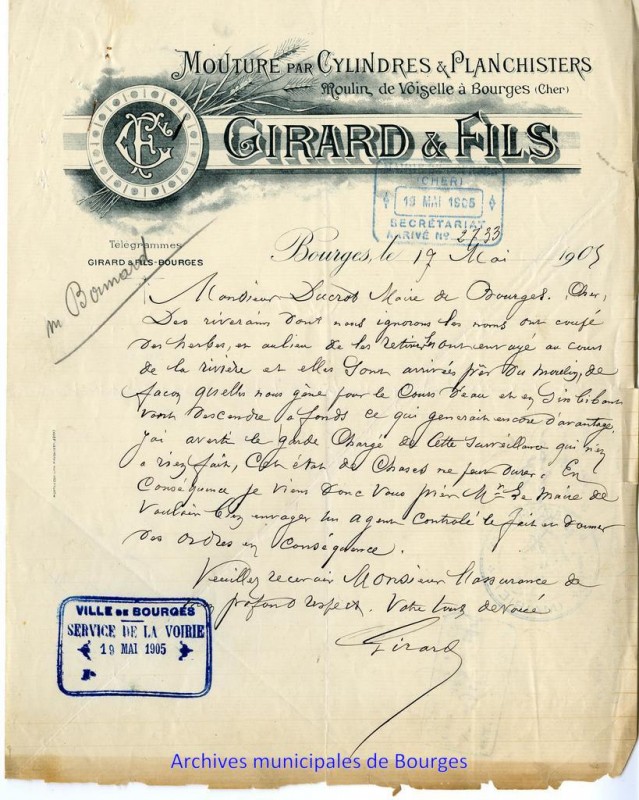 MOUTURE PAR CYLINDRES & PLANCHISTERS
Moulin de Voiselle à Bourges (Cher)
GIRARD & FILS
(CHER)
19 MAI 1905
SECRÉTARIAT
ARRIVÉ No 2733
Télégrammes
GIRARD & FILS-BOURGES
Bourges, le 17 Mai 1905
Monsieur Ducrot Maire de Bourges. (Cher,
Des riverains dont nous ignorons les noms ont coupé
des herbes, en au lieu de les retirer ont envoyé au cours
de la rivière et elles sont arrivées près du moulin, de
façon quelles nous gène pour le Cours d'eau et en s'imbibant
vont descendre a fonds ce qui generait encore d'avantage,
j'ai averti le garde Chargé de cette surveillance qui n'en
a rien fait, Cet état de Choses ne peut durer. En
Conséquence je viens donc vous prier Mr le Maire de
Vouloir bien envoyer un agent controlé le fait en donner
des ordres en conséquence.
Veuillez recevoir Monsieur l'assurance de
profond respect. Votre tout dévoué
Girard
VILLE DE BOURGES
SERVICE DE LA VOIRIE
19 MAI 1905
Archives municipales de Bourges